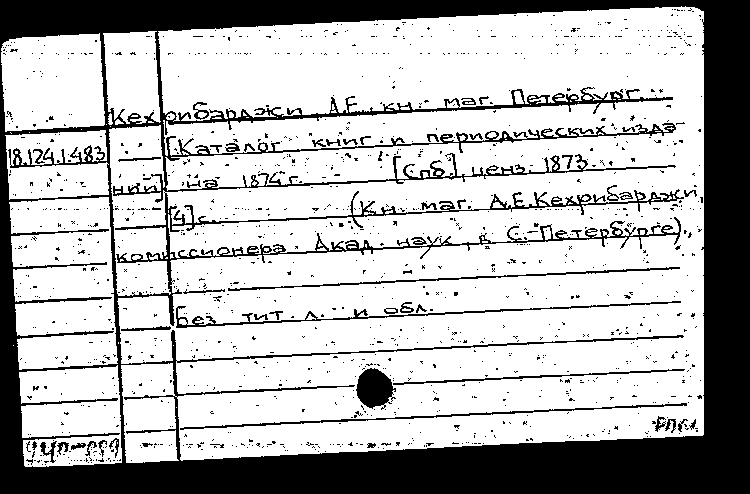 Кехрибарджи, А.Е. кн. маг. Петербург.
18.124.1.483
[Каталог книг и периодических изда-
ний] на 1874 г. [Спб.], ценз. 1873.
[4] с. (Кн. маг. А.Е. Кехрибарджи,
комиссионера Акад. наук, в С.-Петербурге).
Без тит. л. и обл.